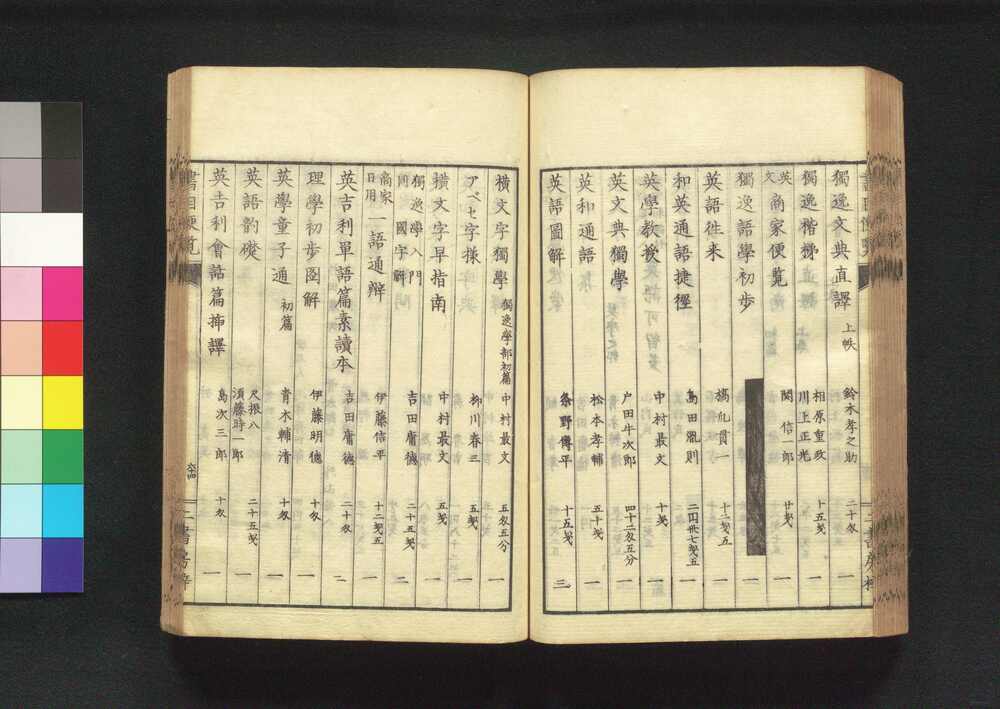 獨逸文典直譯 上帙 鈴木孝之助 二十匁 一
獨逸楷梯 相原重政 川上正光 十五匁 一
英文 商家便覧 関信一郎 廿匁 一
獨逸語學初歩 一
英語徃来 橘爪貫一 十二匁五 一
和英通語捷徑 島田胤則 二円卅七匁五 一
英學教授 中村最文 十匁 一
英文典獨學 戸田牛次郎 四十二匁五分 一
英和通語 松本孝輔 五十匁 一
英語圖解 条野傳平 十五匁 三
横文字獨學 獨逸學部初篇 中村最文 五匁五分 一
アベセ字様 柳川春三 五匁 一
横文字早指南 中村最文 五匁 一
獨逸學入門 同 國字解 吉田庸德 二十五匁 二
商家日用 一語通辯 伊藤信平 十二匁五 一
英吉利單語篇素讀本 吉田庸德 二十匁 二
理學初歩圖解 伊藤明德 十匁 一
英學童子通 初篇 青木輔清 十匁 一
英語韵礎 尺振八 須藤時一郎 二十五匁 一
英吉利會話篇挿譯 島次三郎 十匁 一
書目便覧
二書房梓